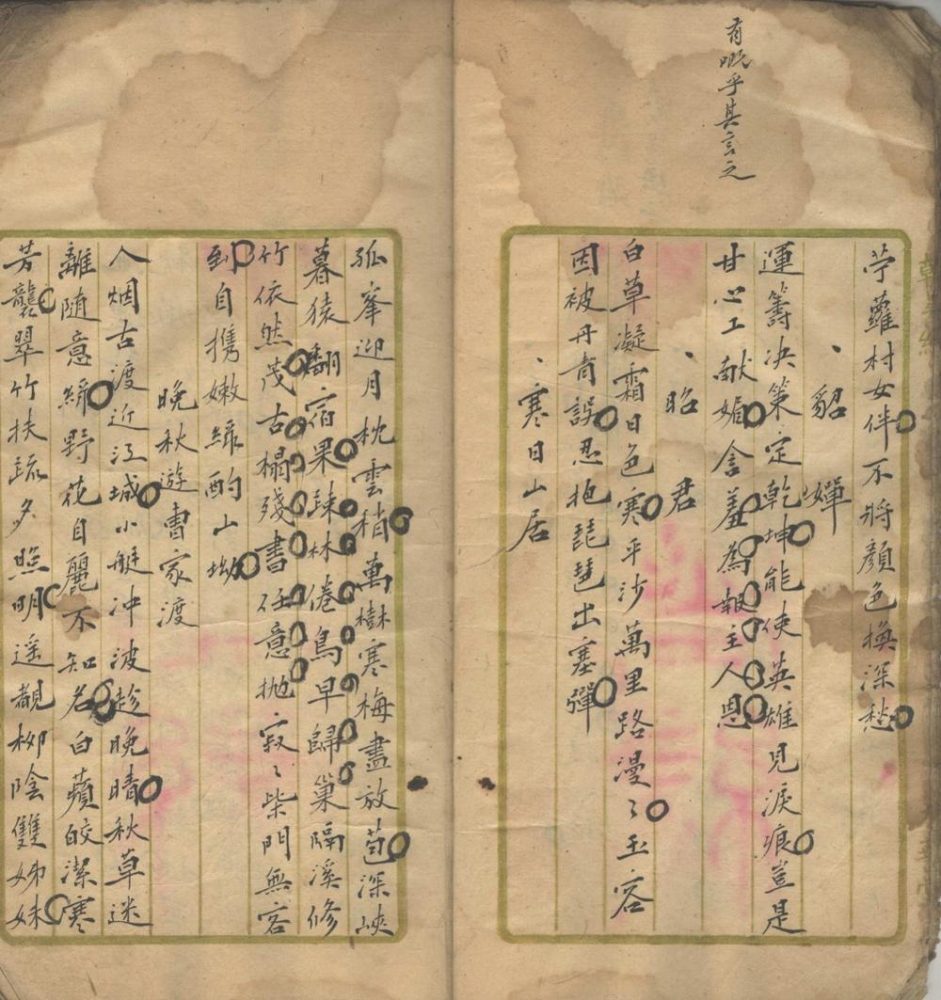 有嘅乎其言之
苧蘿村女伴不將顏色換深愁
貂嬋
運籌决策定乾坤能使英雄見淚痕豈是
甘心工献媚含羞為報主人恩
昭君
白草凝霜日色寒平沙萬里路漫〻玉容
因被丹青誤忍抱琵琶出塞彈
寒日山居
孤峯迎月枕雲梢萬樹寒梅盡放苞深峽
暮猿翻宿果踈林倦鳥早歸巢隔溪修
竹依然茂古榻殘書任意抛寂〻柴門無客
到自携嫩綠酌山坳
晚秋遊曹家渡
人烟古渡近江城小艇冲波趁晚晴秋草迷
離随意綠野花自麗不知名白蘋皎潔寒
芳襲翠竹扶疏夕照明遥覩柳陰雙姊妹